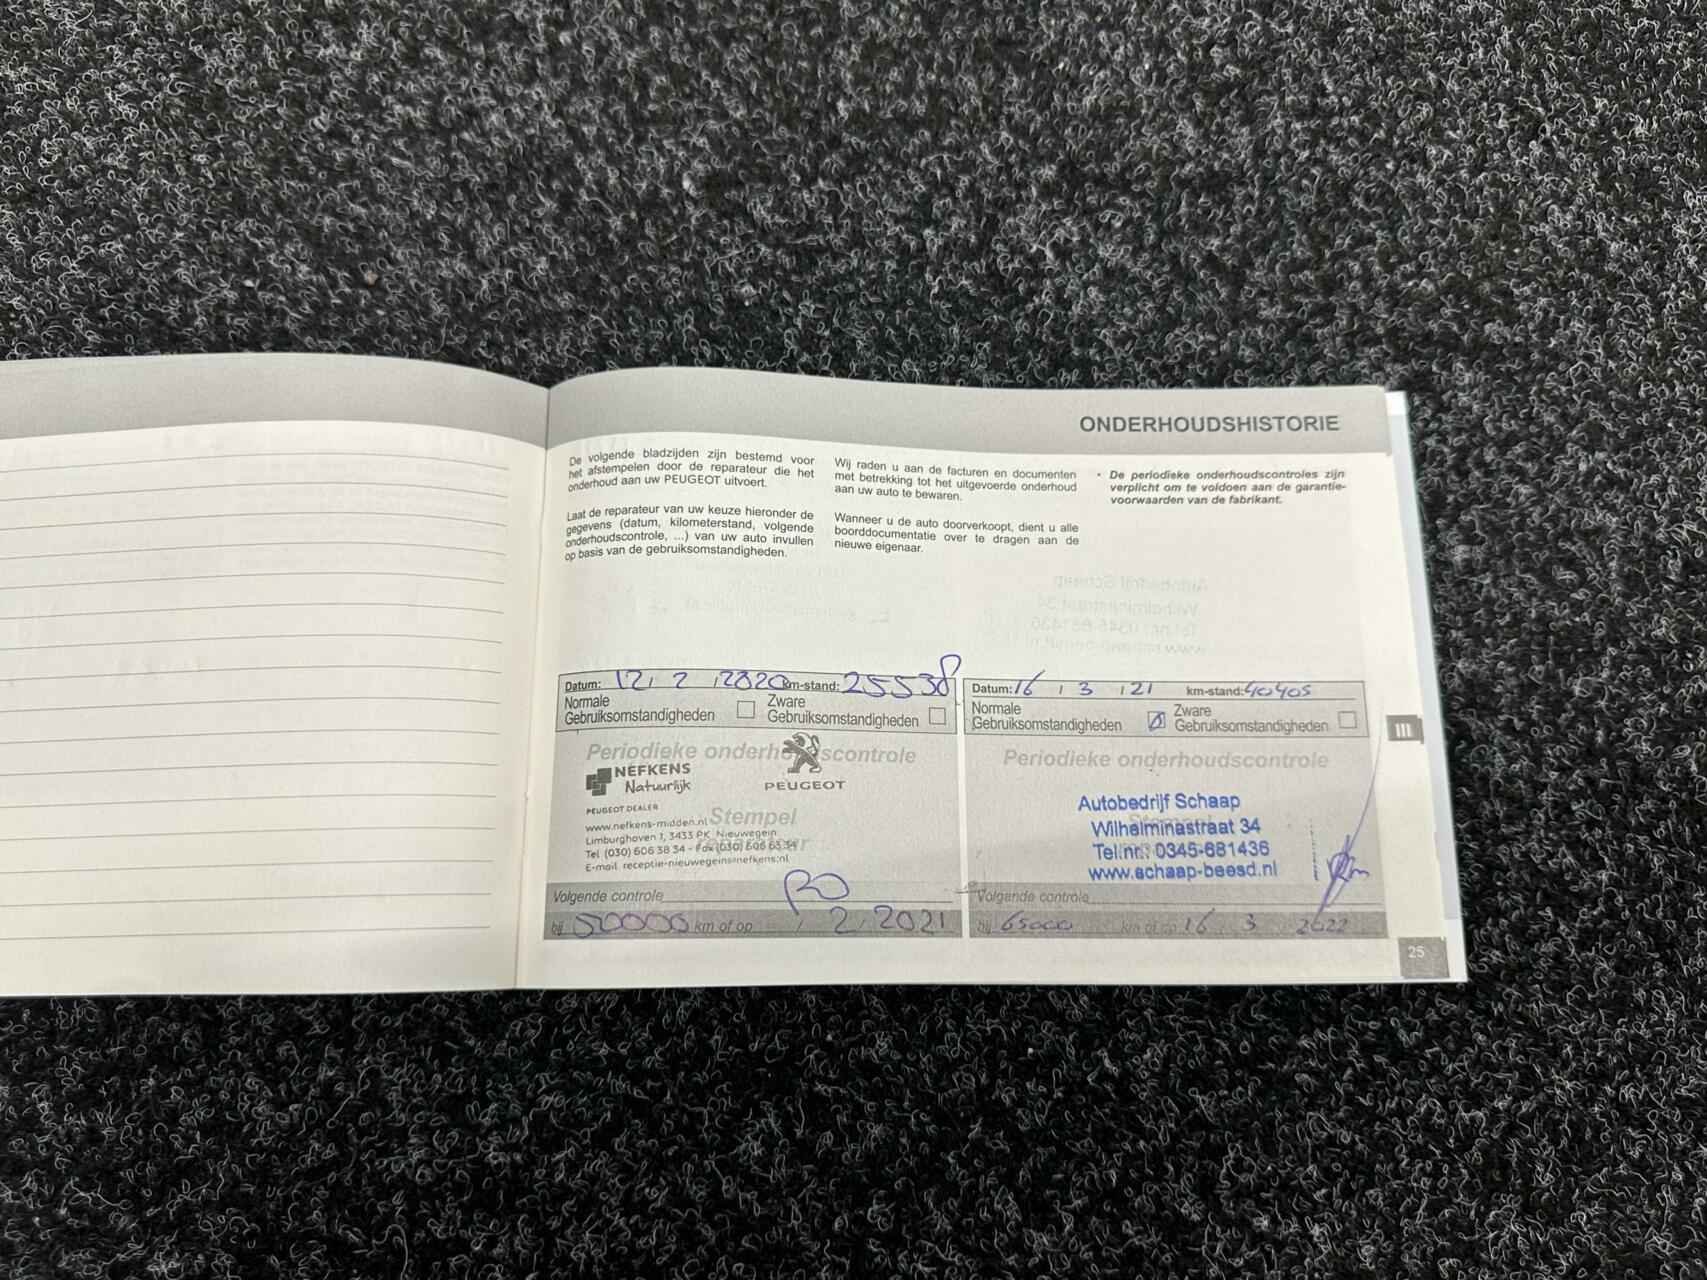 ONDERHOUDSHISTORIE
De volgende bladzijden zijn bestemd voor
het afstempelen door de reparateur die het
onderhoud aan uw PEUGEOT uitvoert.
Laat de reparateur van uw keuze hieronder de
gegevens (datum, kilometerstand, volgende
onderhoudscontrole, ...) van uw auto invullen
op basis van de gebruiksomstandigheden.
Wij raden u aan de facturen en documenten
met betrekking tot het uitgevoerde onderhoud
aan uw auto te bewaren.
Wanneer u de auto doorverkoopt, dient u alle
boorddocumentatie over te dragen aan de
nieuwe eigenaar.
• De periodieke onderhoudscontroles zijn
verplicht om te voldoen aan de garantie-
voorwaarden van de fabrikant.
Datum: 12, 2, 2020 km-stand: 25538
Normale
Gebruiksomstandigheden
Zware
Gebruiksomstandigheden
Periodieke onderhoudscontrole
NEFKENS
Natuurlijk
PEUGEOT
PEUGEOT DEALER
Stempel
www.nefkens-midden.nl
Limburghoven 1, 3433 PK Nieuwegein
Tel (030) 606 38 34 - Fax (030) 606 63 34
E-mail receptie-nieuwegein@nefkens.nl
Volgende controle
bij 50000 km of op , 2, 2021
Datum: 16 / 3 / 21 km-stand: 40405
Normale
Gebruiksomstandigheden
Zware
Gebruiksomstandigheden
Periodieke onderhoudscontrole
Autobedrijf Schaap
Wilhelminastraat 34
Tel.nr.: 0345-681436
www.schaap-beesd.nl
Volgende controle
bij 65000 km of op 16 3 2022
III
25